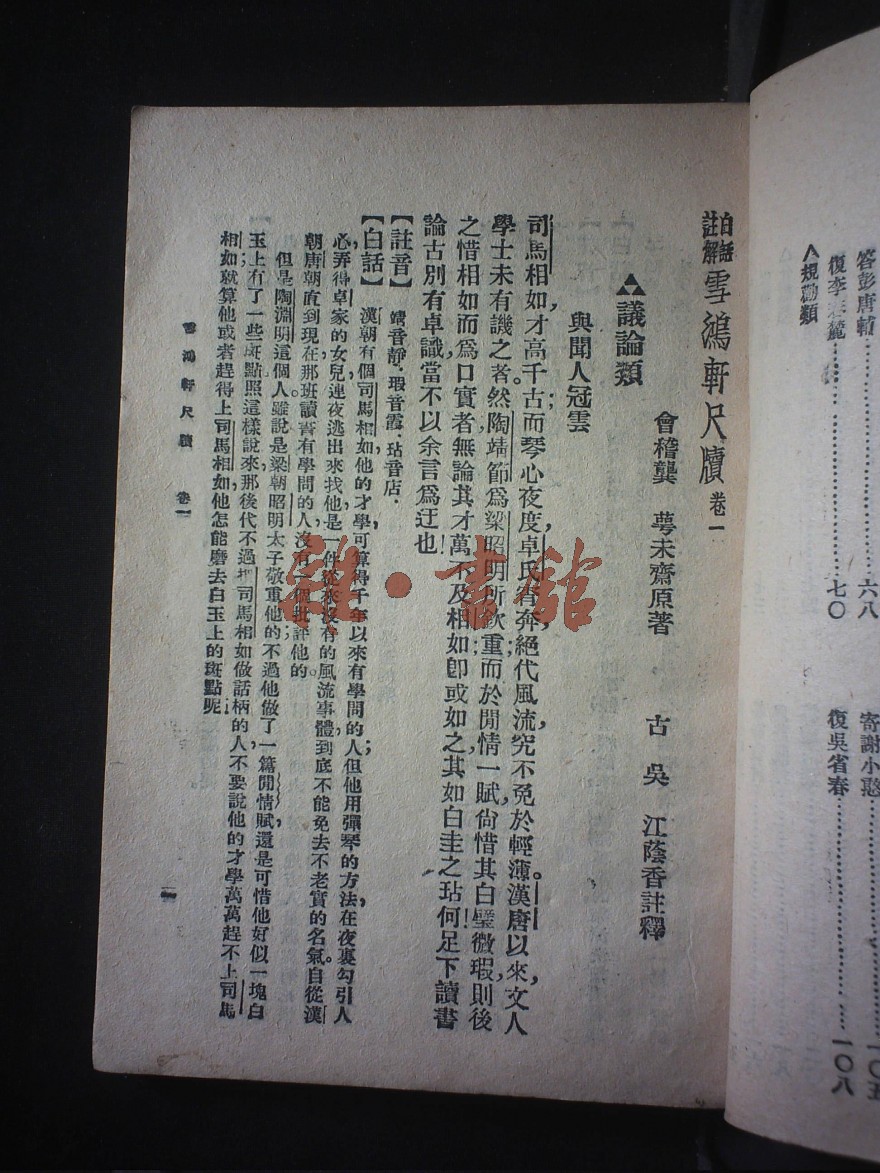 白話註解雪鴻軒尺牘 卷一
會稽龔 萼未齋原著 古吳 江蔭香註釋
議論類
與聞人冠雲
司馬相如才高千古而琴心夜度卓氏宵奔絕代風流究不免於輕薄。漢唐以來文人
學士未有譏之者。然陶靖節爲梁昭明所欽重而於閒情一賦尙惜其白璧微瑕則後
之惜相如而爲口實者無論其才萬不及相如卽或如之其如白圭之玷何足下讀書
論古別有卓識當不以余言爲迂也!
【註音】 靖音靜. 瑕音霞. 玷音店.
【白話】 漢朝有個司馬相如他的才學可算得千年以來有學問的人但他用彈琴的方法在夜裏勾引人
必弄得卓家的女兒連夜逃出來找他是一件從來沒有的風流事體到底不能免去不老實的名氣。自從漢
朝唐朝直到現在那班讀書有學問的人沒有一個批評他的
但是陶淵明這個人雖說是梁朝昭明太子敬重他的不過他做了一篇閒情賦還是可惜他好似一塊白
玉上有了一些斑點照這樣說來那後代不過把司馬相如做話柄的人不要說他的才學萬萬趕不上司馬
相如就算他或者趕得上司馬相如他怎能磨去白玉上的斑點呢
雪鴻軒尺牘 卷一
一
答彭唐輔 六八
復李 七〇
規勸類
寄謝小憨 一〇五
復吳省春 一〇八
雜·書館